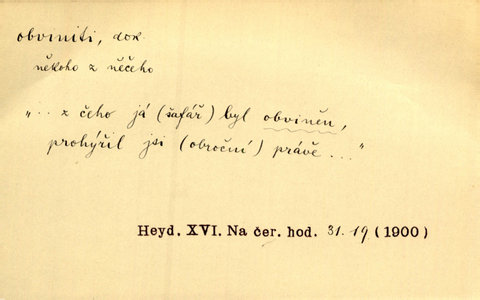 obviniti, dok.
někoho z něčeho
„.. z čeho já (šafář) byl obviněn,
prohýřil jsi (obroční) právě ..."
Heyd. XVI. Na čer. hod. 31.19 (1900)